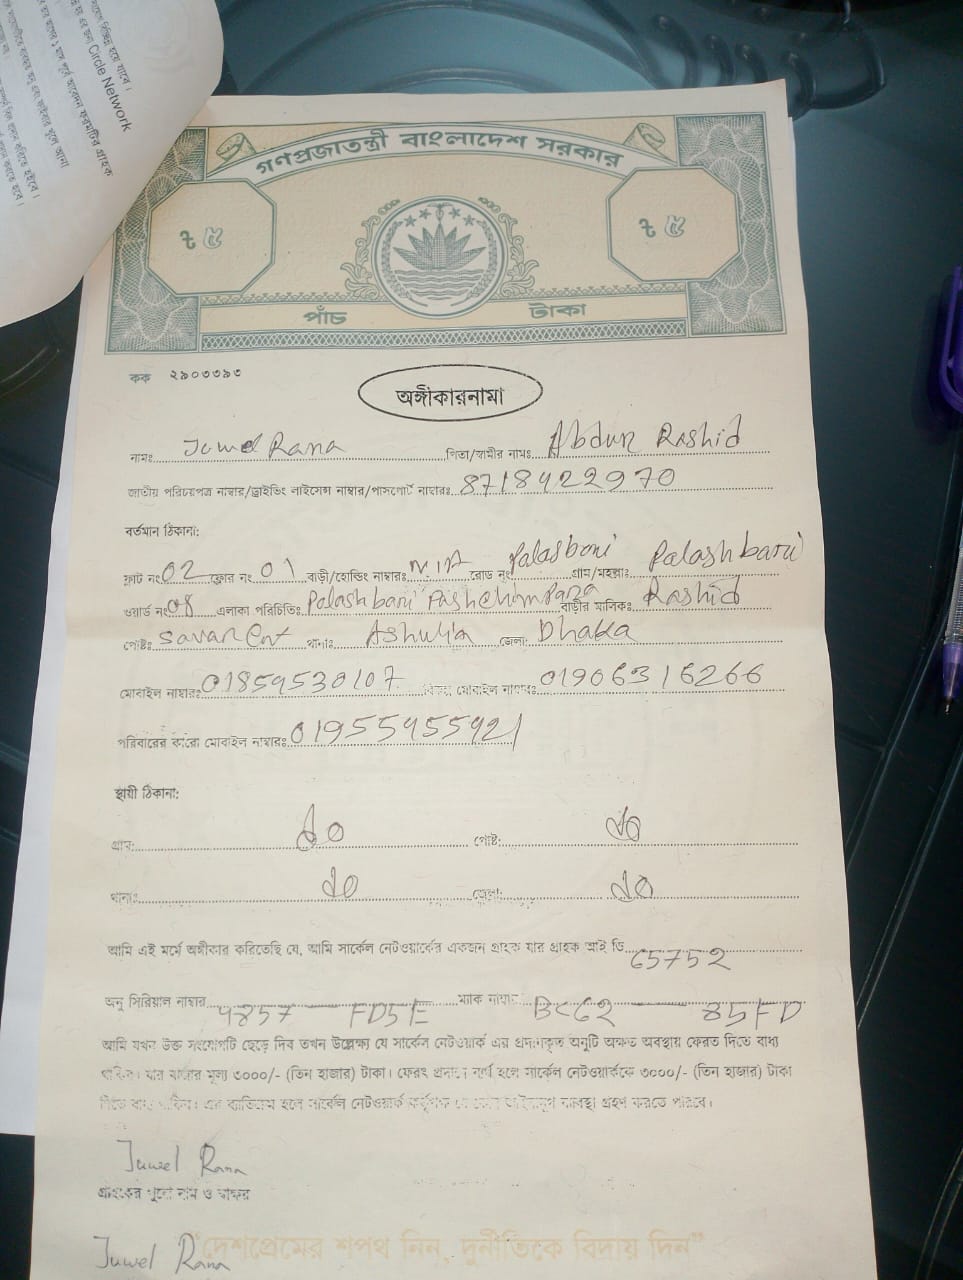 Circle Network
গণপ্রজাতন্ত্রী বাংলাদেশ সরকার
৳ ৫ ৳ ৫
পাঁচ টাকা
কক ২৯০৩৩৯৩
অঙ্গীকারনামা
নামঃ Juwel Rana পিতা/স্বামীর নামঃ Abdur Rashid
জাতীয় পরিচয়পত্র নাম্বার/ড্রাইভিং লাইসেন্স নাম্বার/পাসপোর্ট নাম্বারঃ 8718422970
বর্তমান ঠিকানা:
ফ্লাট নংঃ 02 ফ্লোর নংঃ 01 বাড়ী/হোল্ডিং নাম্বারঃ N/A রোড নং Palasbari গ্রাম/মহল্লাঃ Palashbari
ওয়ার্ড নংঃ 08 এলাকা পরিচিতিঃ Palashbari Pashchim Para বাড়ীর মালিকঃ Rashid
পোষ্টঃ Savar Cnt থানাঃ Ashulia জেলা: Dhaka
মোবাইল নাম্বারঃ 01859530107 মোবাইল নাম্বারঃ 01906316266
পরিবারের কারো মোবাইল নাম্বারঃ 01955955921
স্থায়ী ঠিকানা:
গ্রাম: do পোষ্ট: do
থানাঃ do জেলা: do
আমি এই মর্মে অঙ্গীকার করিতেছি যে, আমি সার্কেল নেটওয়ার্কের একজন গ্রাহক যার গ্রাহক আই ডি 65752
অনু সিরিয়াল নাম্বার 4857 — FD5E ম্যাক নাম্বার BC62 — 85FD
আমি যখন উক্ত সংযোগটি ছেড়ে দিব তখন উল্লেখ্য যে সার্কেল নেটওয়ার্ক এর প্রদানকৃত অনুটি অক্ষত অবস্থায় ফেরত দিতে বাধ্য
থাকিব। যার বাজার মূল্য ৩০০০/- (তিন হাজার) টাকা। ফেরৎ প্রদানে ব্যর্থ হলে সার্কেল নেটওয়ার্ককে ৩০০০/- (তিন হাজার) টাকা
দিতে বাধ্য থাকিব। এর ব্যতিক্রম হলে সার্কেল নেটওয়ার্ক কর্তৃপক্ষ ব্যবস্থা গ্রহণ করতে পারবে।
Juwel Rana
গ্রাহকের পুরো নাম ও স্বাক্ষর
Juwel Rana
"দেশপ্রেমের শপথ নিন, দুর্নীতিকে বিদায় দিন"